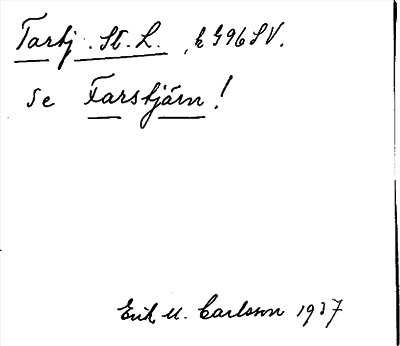 Tarstj. St. L. , k G96 SV.
Se Farstjärn!
Erik M. Carlsson 1937